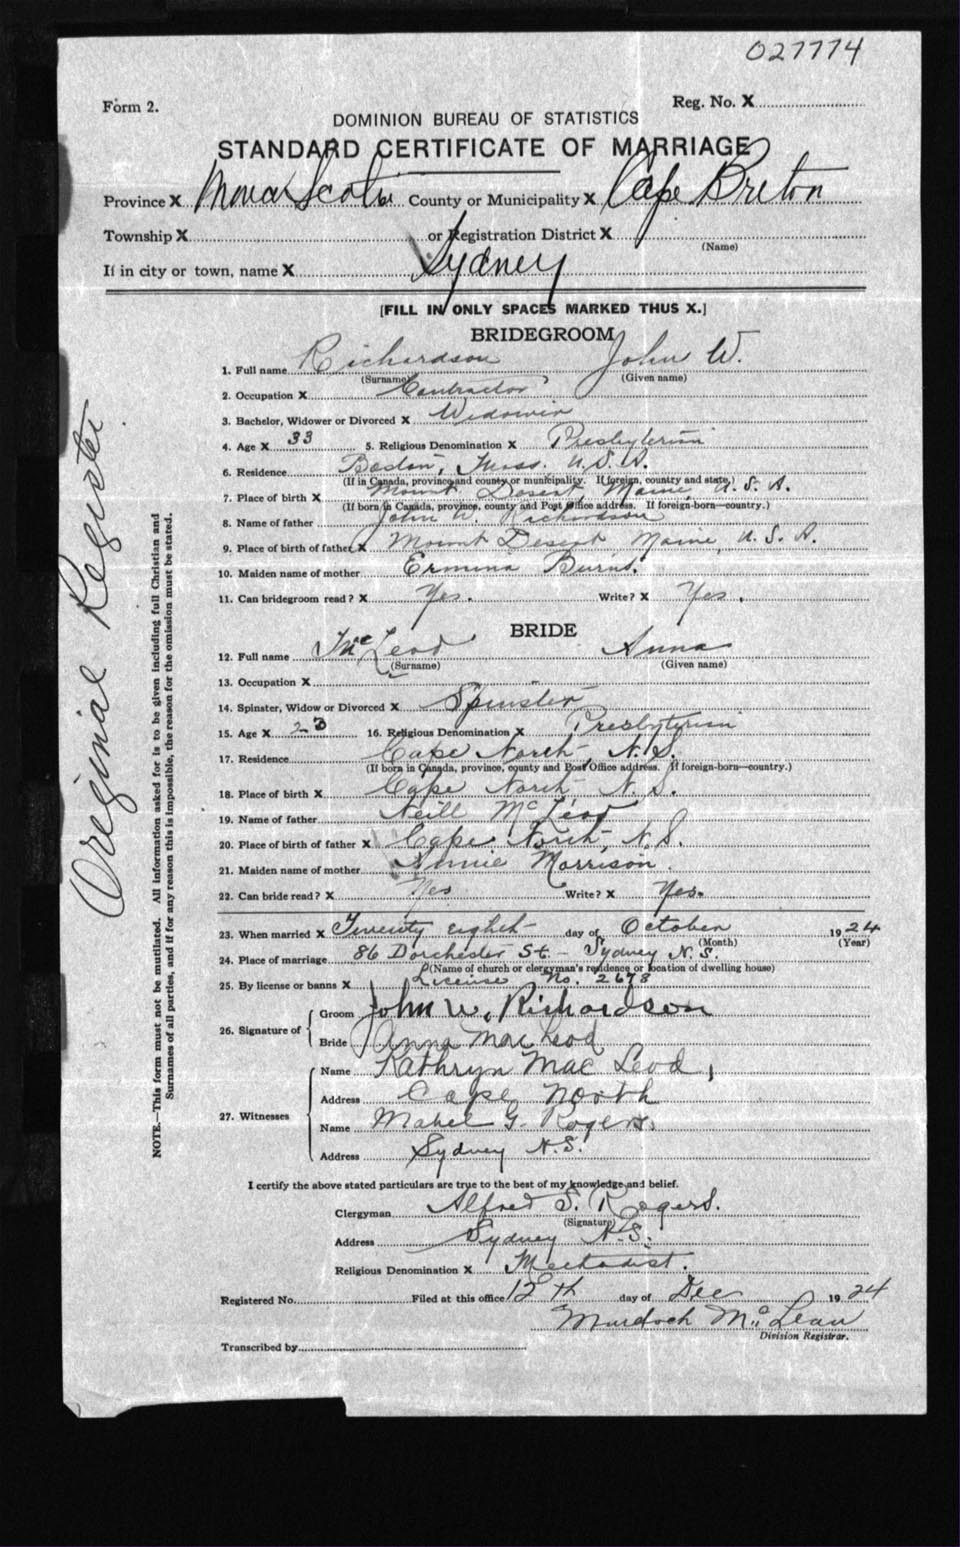 027774
Form 2.
Reg. No. X
DOMINION BUREAU OF STATISTICS
STANDARD CERTIFICATE OF MARRIAGE
Province X Nova Scotia County or Municipality X Cape Breton
Township X or Registration District X
(Name)
If in city or town, name X Sydney
[FILL IN ONLY SPACES MARKED THUS X.]
BRIDEGROOM
1. Full name Richardson John W.
(Surname) (Given name)
2. Occupation X Contractor
3. Bachelor, Widower or Divorced X Widower
4. Age X 33 5. Religious Denomination X Presbyterian
6. Residence Boston, Mass. U.S.A.
(If in Canada, province and county or municipality. If foreign, country and state.)
7. Place of birth X Mount Desert, Maine, U.S.A.
(If born in Canada, province, county and Post Office address. If foreign-born—country.)
8. Name of father John W. Richardson
9. Place of birth of father X Mount Desert Maine, U.S.A.
10. Maiden name of mother Ermina Burns.
11. Can bridegroom read? X Yes. Write? X Yes.
BRIDE
12. Full name McLeod Anna
(Surname) (Given name)
13. Occupation X
14. Spinster, Widow or Divorced X Spinster
15. Age X 23 16. Religious Denomination X Presbyterian
17. Residence Cape North N.S.
(If born in Canada, province, county and Post Office address. If foreign-born—country.)
18. Place of birth X Cape North N.S.
19. Name of father Neill McLeod
20. Place of birth of father X Cape North, N.S.
21. Maiden name of mother Annie Morrison
22. Can bride read? X Yes Write? X Yes.
23. When married X Twenty eighth day of October 1924
(Month) (Year)
24. Place of marriage 86 Dorchester St. - Sydney N.S.
(Name of church or clergyman's residence or location of dwelling house)
25. By license or banns X License No. 2678
26. Signature of
Groom John W. Richardson
Bride Anna MacLeod
27. Witnesses
Name Kathryn MacLeod,
Address Cape North
Name Mabel G. Rogers.
Address Sydney N.S.
I certify the above stated particulars are true to the best of my knowledge and belief.
Clergyman Alfred S. Rogers.
(Signature)
Address Sydney N.S.
Religious Denomination X Methodist.
Registered No. Filed at this office 12th day of Dec 1924
Murdoch McLean
Division Registrar.
Transcribed by
Original Register
NOTE.—This form must not be mutilated. All information asked for is to be given including full Christian and
Surnames of all parties, and if for any reason this is impossible, the reason for the omission must be stated.